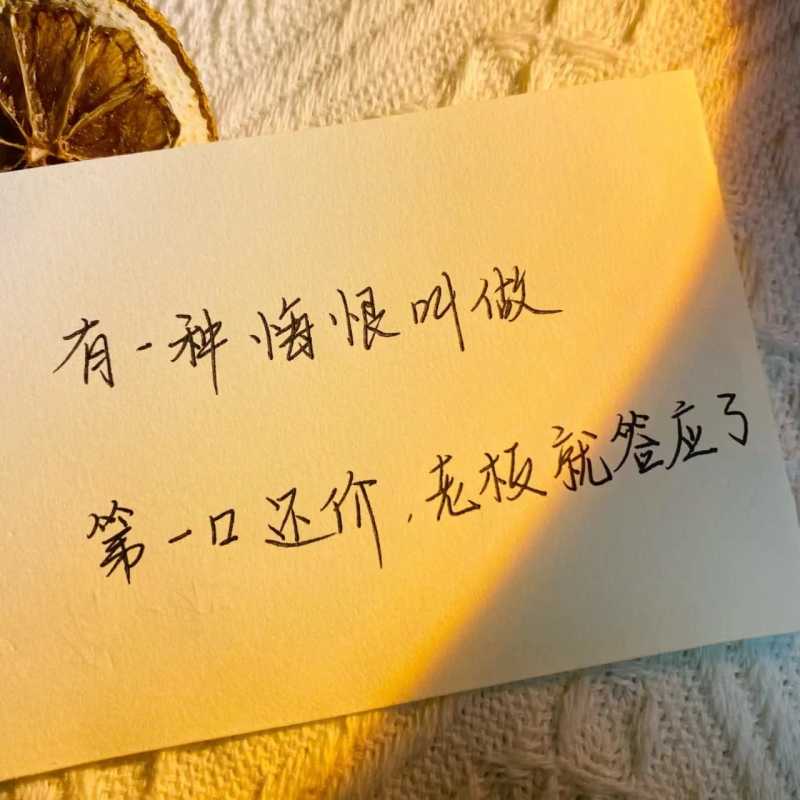 有一种悔恨叫做
第一口还价,老板就答应了